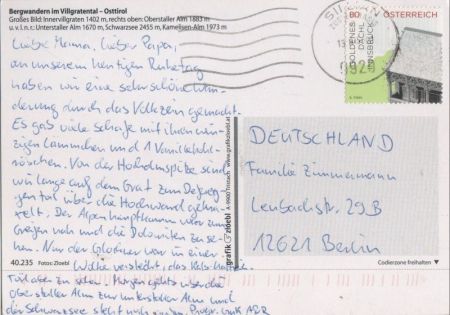 Bergwandern im Villgratental – Osttirol
Großes Bild: Innervillgraten 1402 m, rechts oben: Oberstaller Alm 1883 m
u. v. l. n. r.: Unterstaller Alm 1670 m, Schwarzsee 2455 m, Kamelisen-Alm 1973 m
Liebe Mama, lieber Papa,
an unserem heutigen Ruhetag
haben wir eine sehr schöne Wan-
derung durch das Volkzein gemacht.
Es gab viele Schafe mit ihren win-
zigen Lämmchen und 1 Vanillekohl-
röschen. Von der Hochalmspitze sind
wir lange auf dem Grat zum Defereg-
gental über die Hochwand gewan-
delt. Der Alpenhauptkamm war zum
Greifen nah und die Dolomiten zu se-
hen. Nur der Glockner war in einer
Wolke versteckt, das Kals-Matreier
Törl aber zu sehen. Morgen geht's über die
Oberstaller Alm zur Unterstaller Alm und
der Schwarzsee steht auch
40.235 Fotos: Zloebl
grafik zloebl
A-9900 Tristach / www.grafikzloebl.at
SILLIAN
9920
80 ÖSTERREICH
GOLDENES
DACHL
INNSBRUCK
DEUTSCHLAND
Familie Zimmermann
Lenbachstr. 29B
12621 Berlin
Codierzone freihalten